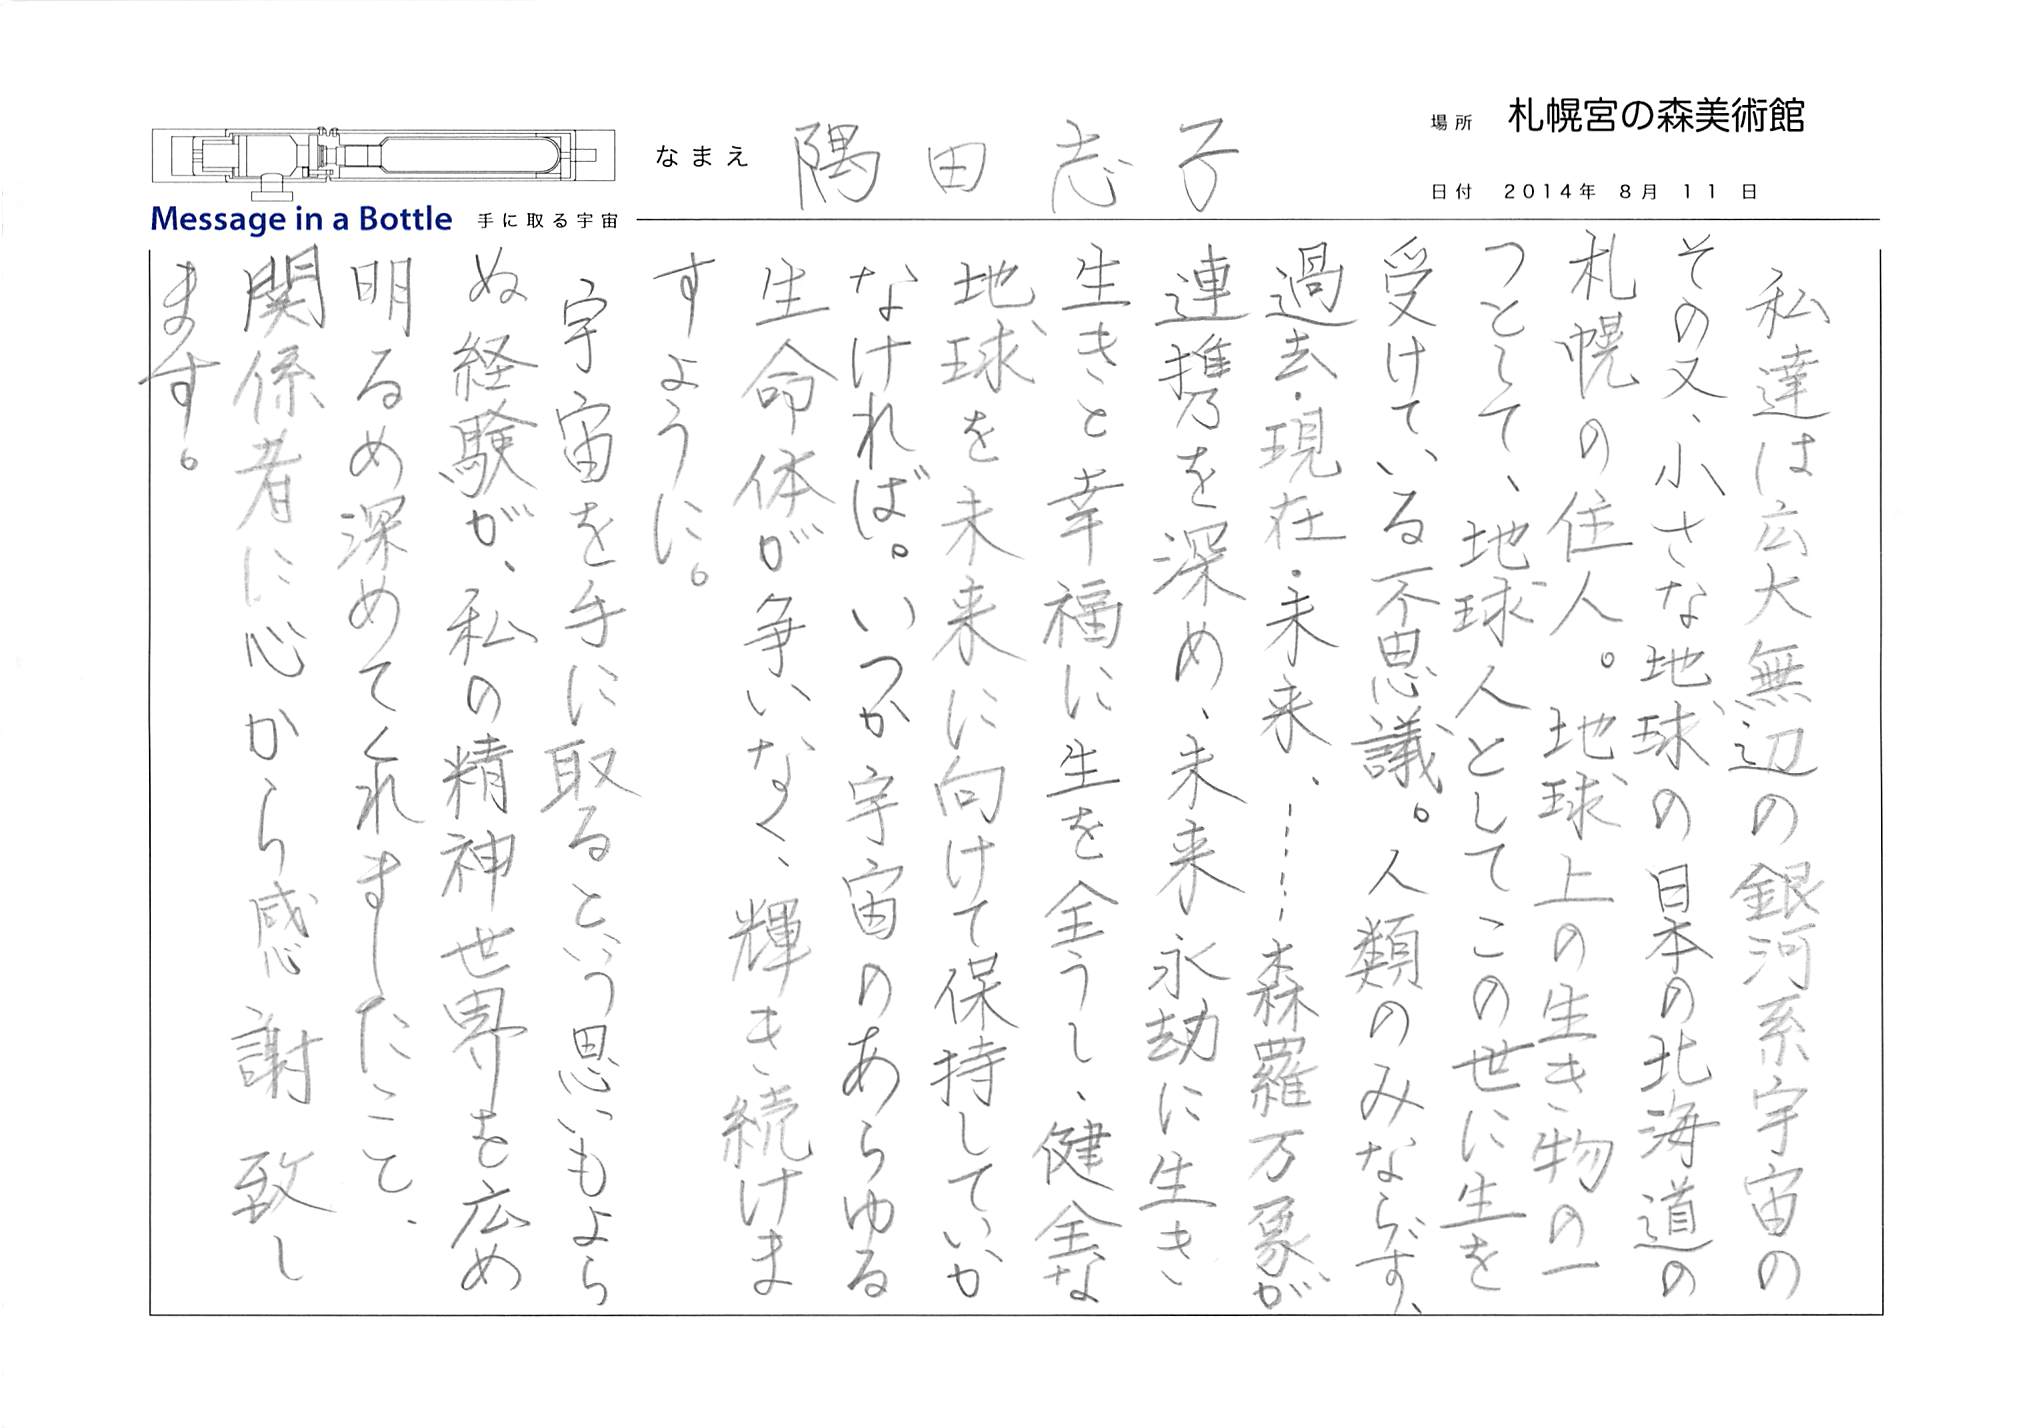 場所 札幌宮の森美術館
なまえ 隅田志子
日付 2014年 8月 11日
Message in a Bottle 手に取る宇宙
私達は広大無辺の銀河系宇宙の
その又、小さな地球の日本の北海道の
札幌の住人。地球上の生き物の一
つとして、地球人としてこの世に生を
受けている不思議。人類のみならず、
過去・現在・未来、……森羅万象が
連携を深め、未来永劫に生き
生きと幸福に生を全うし、健全な
地球を未来に向けて保持していか
なければ。いつか宇宙のあらゆる
生命体が争いなく、輝き続けま
すように。
宇宙を手に取るという思いもよら
ぬ経験が、私の精神世界を広め
明るめ深めてくれましたこと、
関係者に心から感謝致し
ます。